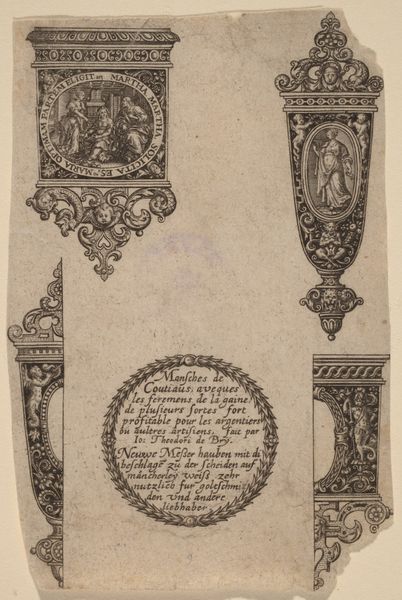 MARTHA MARTHA SOLICITA ES, MARIA OPTIMAM PARTEM ELIGIT
Mansches de
Coutiaus, aveques
les feremens de la gaine,
de plusieurs sortes fort
profitable pour les argentiers
ou aultres artisiens, fait par
Io: Theodori de Bry.
Neuwe Meßer hauben mit di
beschlage zu der scheiden auf
mancherley weiß zehr
nutzlich fur goltschmi
den vnd andere
liebhaber